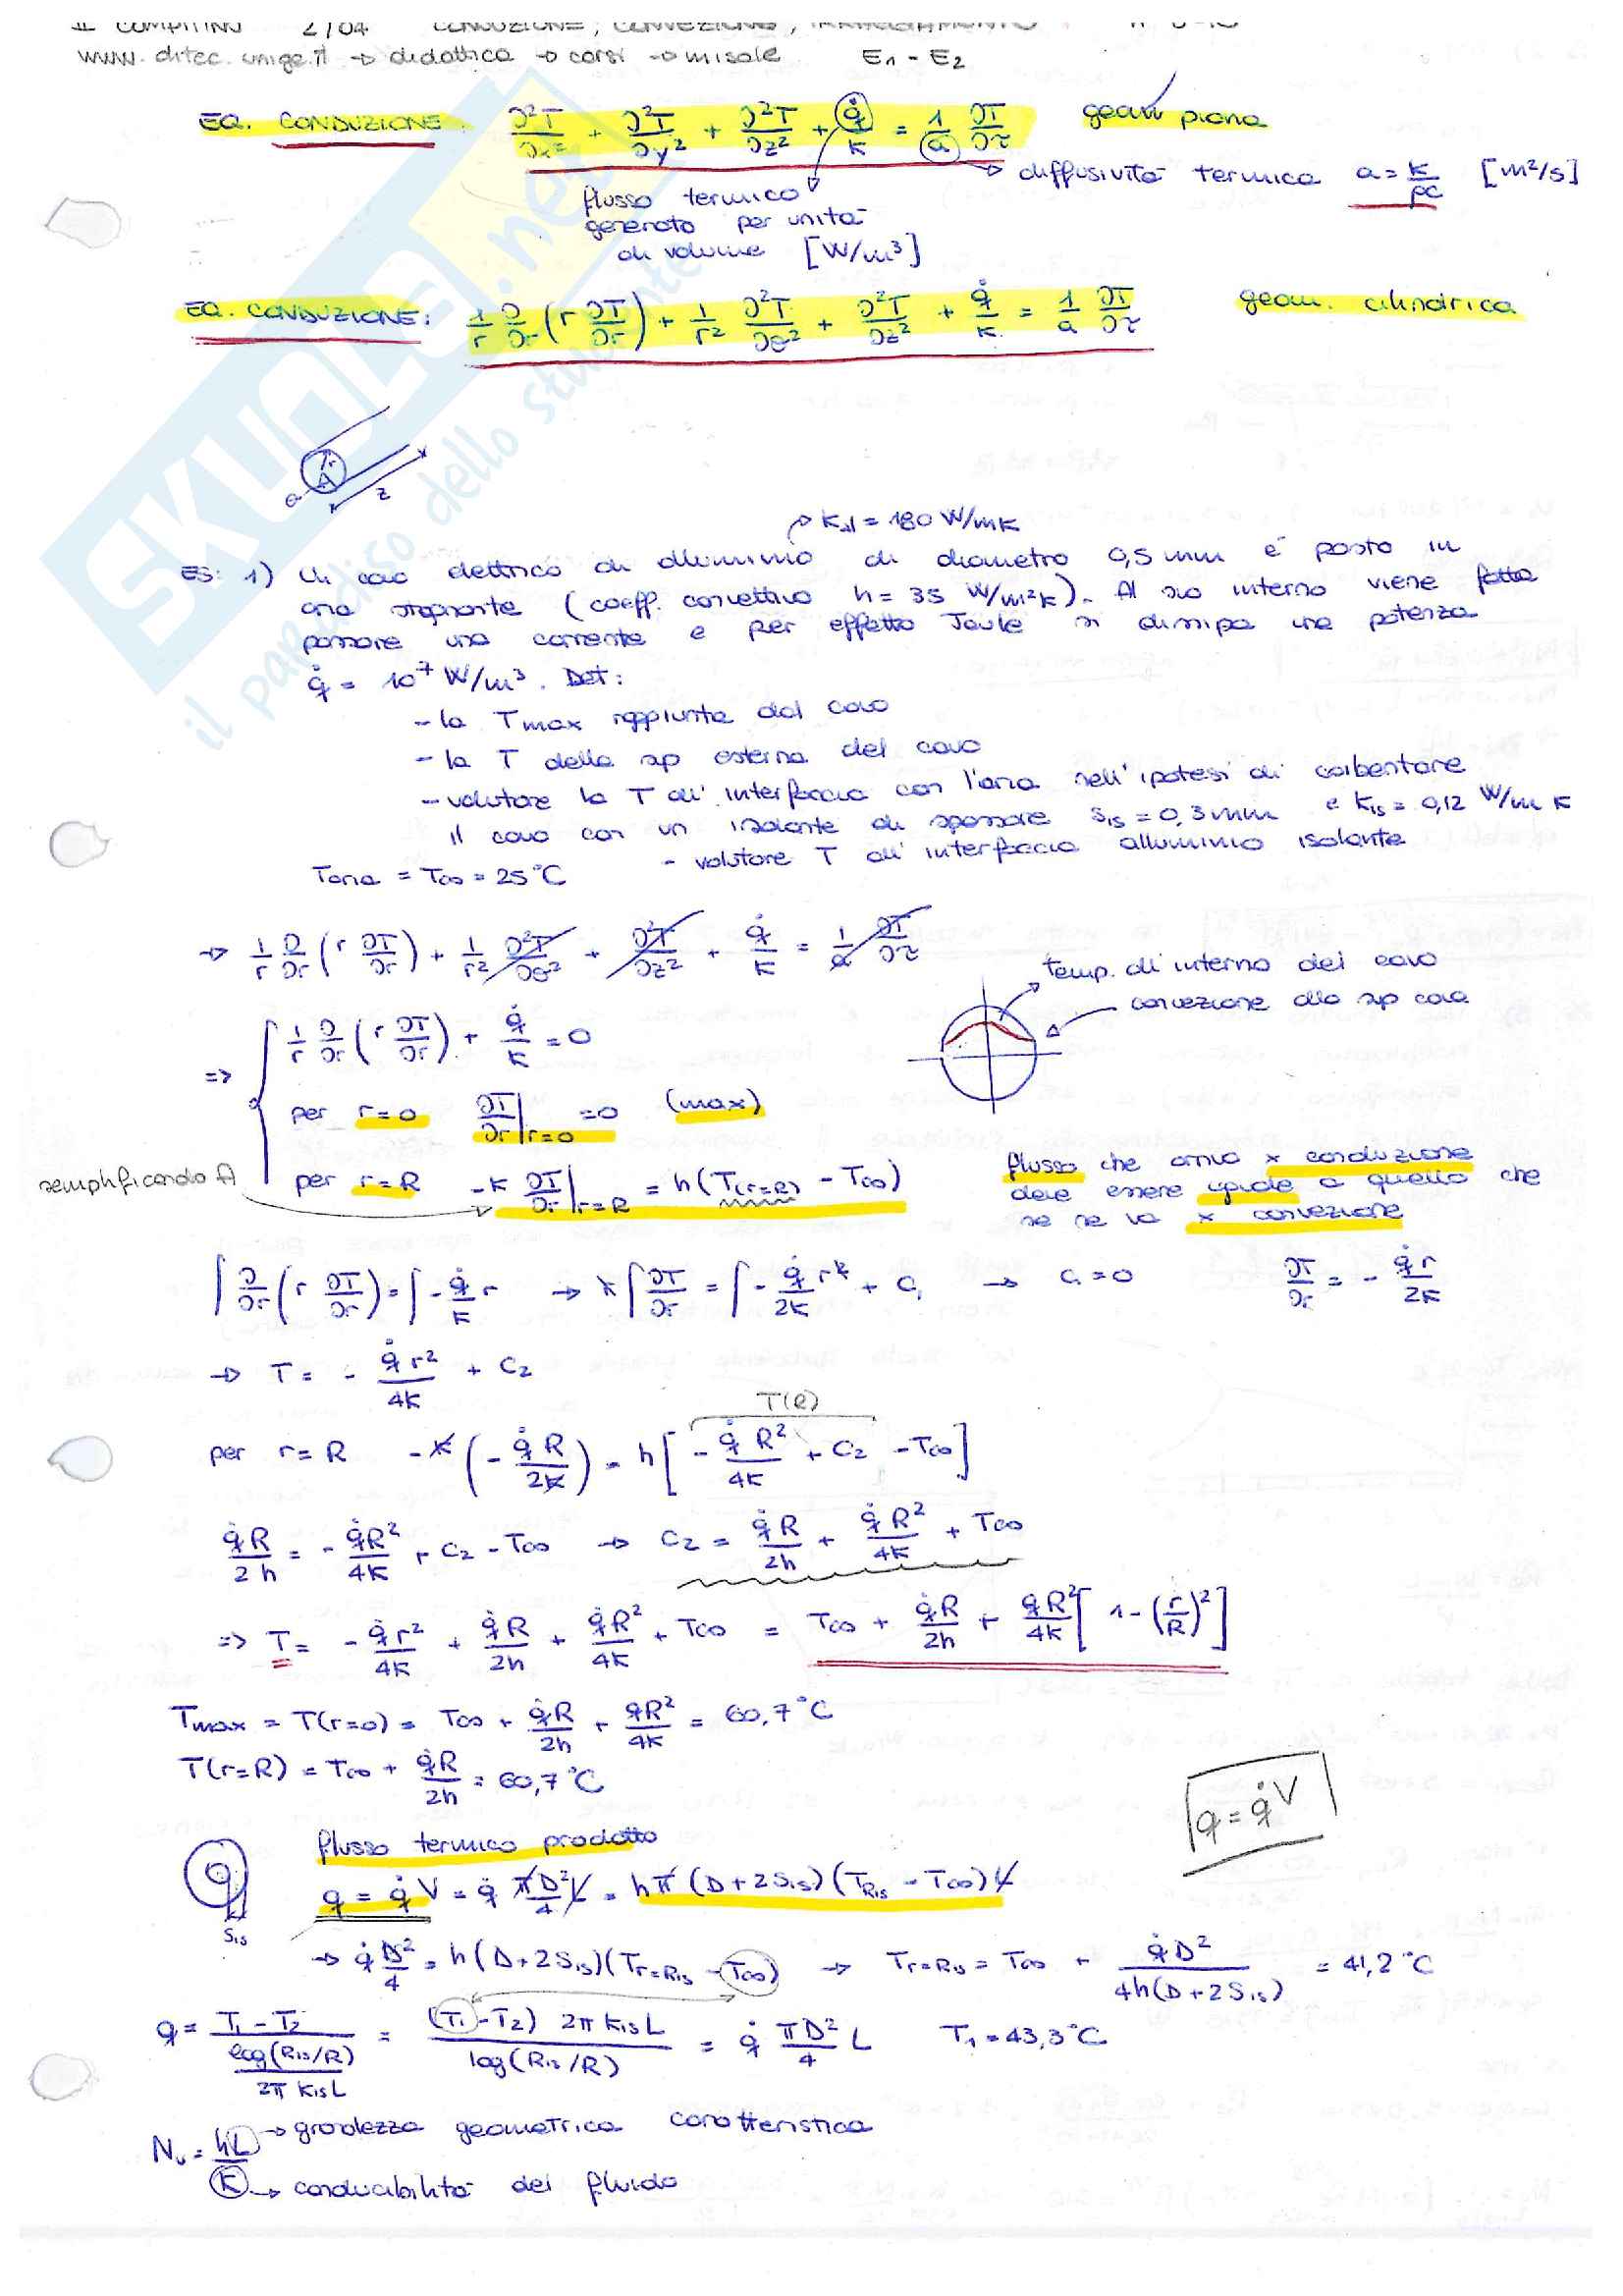 II COMPITINO 2/04 CONDUZIONE, CONVEZIONE, IRRAGGIAMENTO
www.ditec.unige.it → didattica → corsi → misale E₁ - E₂
EQ. CONDUZIONE: ∂²T/∂x² + ∂²T/∂y² + ∂²T/∂z² + q̇/k = 1/a ∂T/∂τ geom piana
→ diffusività termica a = k/ρc [m²/s]
flusso termico
generato per unità
di volume [W/m³]
EQ. CONDUZIONE: 1/r ∂/∂r (r ∂T/∂r) + 1/r² ∂²T/∂θ² + ∂²T/∂z² + q̇/k = 1/a ∂T/∂τ geom. cilindrica
SKUOLA.net
il paradiso dello studente
r
A
z
→ k_al = 180 W/mK
ES: 1) Un cavo elettrico di alluminio di diametro 0,5 mm è posto in
aria stagnante (coeff. convettivo h = 35 W/m²K). Al suo interno viene fatta
passare una corrente e per effetto Joule si dissipa una potenza
q̇ = 10⁷ W/m³. Det:
- la Tmax raggiunta dal cavo
- la T della sup esterna del cavo
- valutare la T all'interfaccia con l'aria nell'ipotesi di coibentare
il cavo con un isolante di spessore s_is = 0,3 mm e k_is = 0,12 W/m K
- valutare T all'interfaccia alluminio isolante
Taria = T∞ = 25°C
→ 1/r ∂/∂r (r ∂T/∂r) + 1/r² ∂²T/∂θ² + ∂²T/∂z² + q̇/k = 1/a ∂T/∂τ
temp. all'interno del cavo
convezione alla sup cavo
⇒ { 1/r ∂/∂r (r ∂T/∂r) + q̇/k = 0
per r=0 ∂T/∂r|r=0 = 0 (max)
semplificando A
per r=R -k ∂T/∂r|r=R = h (T(r=R) - T∞)
flusso che arriva x conduzione
deve essere uguale a quello che
se ne va x convezione
∫ ∂/∂r (r ∂T/∂r) = ∫ - q̇/k r → r ∫ ∂T/∂r = ∫ - q̇/2k r² + C₁ → C₁ = 0 ∂T/∂r = - q̇r/2k
→ T = - q̇r²/4k + C₂
T(R)
per r=R -k (- q̇R/2k) = h [- q̇R²/4k + C₂ - T∞]
q̇R/2h = - q̇R²/4k + C₂ - T∞ → C₂ = q̇R/2h + q̇R²/4k + T∞
⇒ T = - q̇r²/4k + q̇R/2h + q̇R²/4k + T∞ = T∞ + q̇R/2h + q̇R²/4k [1 - (r/R)²]
Tmax = T(r=0) = T∞ + q̇R/2h + q̇R²/4k = 60,7°C
T(r=R) = T∞ + q̇R/2h = 60,7°C
q = q̇V
flusso termico prodotto
q = q̇V = q̇ πD²/4 L = hπ (D+2S_is) (T_Ris - T∞) L
S_is
→ q̇ D²/4 = h (D+2S_is) (T_r=Ris - T∞) → T_r=Ris = T∞ + q̇D²/4h(D+2S_is) = 41,2°C
q = (T₁ - T₂)/(log(R_is/R)/2π k_is L) = (T₁ - T₂) 2π k_is L/log(R_is/R) = q̇ πD²/4 L T₁ = 43,3°C
Nu = hL/k → grandezza geometrica caratteristica
→ conducibilità del fluido